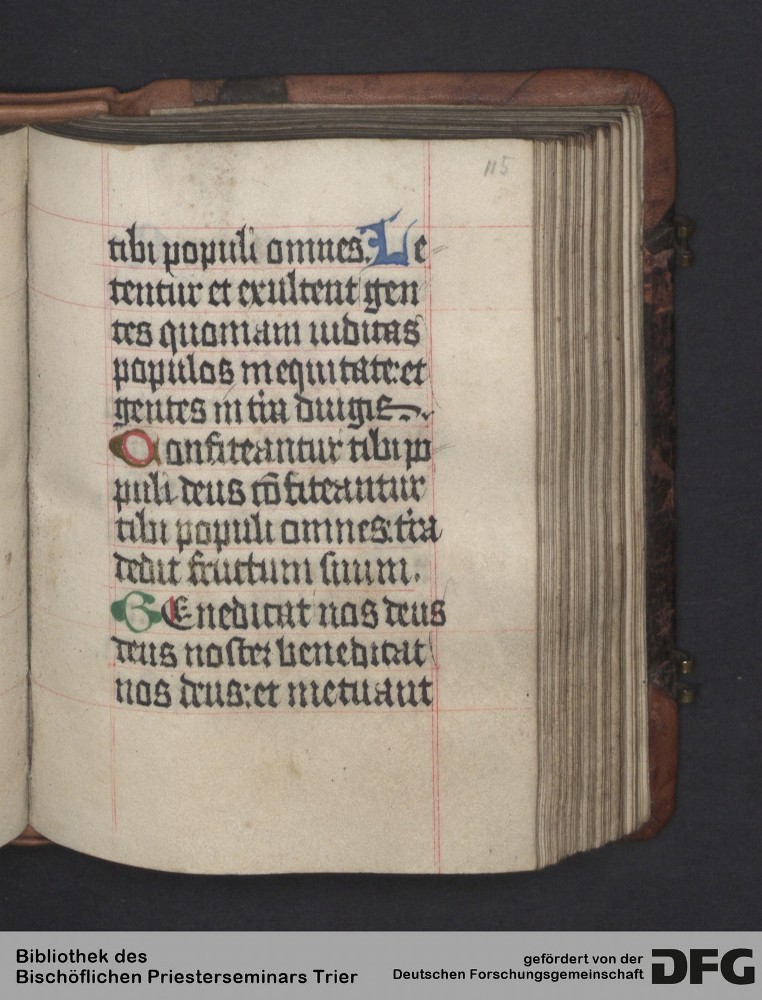 115
tibi populi omnes. Le
tentur et exultent gen
tes quoniam iudicas
populos in equitate: et
gentes in tr̄a dirigis
Confiteantur tibi po
puli deus cōfiteantur
tibi populi omnes: tr̄a
dedit fructum suum.
BEnedicat nos deus
deus noster benedicat
nos deus: et metuant
Bibliothek des
Bischöflichen Priesterseminars Trier
gefördert von der
Deutschen Forschungsgemeinschaft
DFG